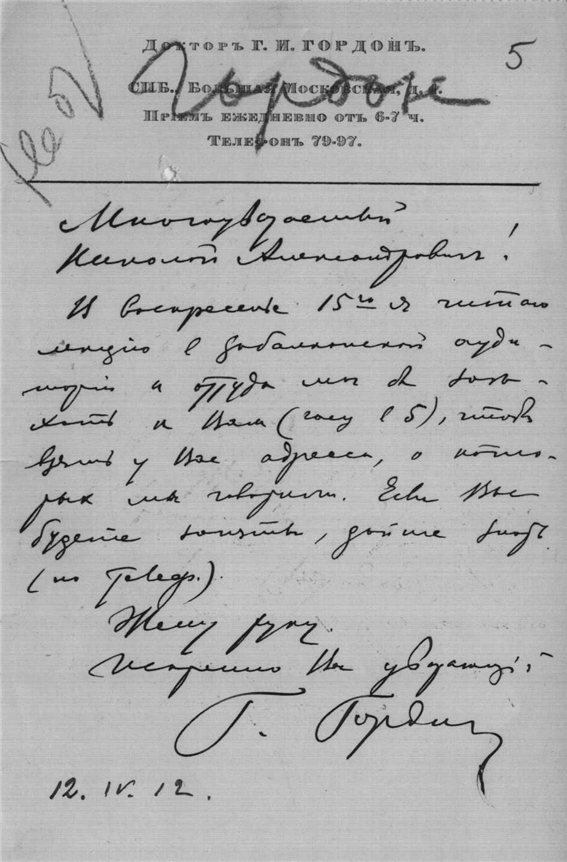 5
Докторъ Г. И. ГОРДОНЪ.
Гордон
СПБ., Большая Московская, д.
Пріемъ ежедневно отъ 6-7 ч.
Телефонъ 79-97.
Многоуважаемый
Николай Александровичъ!
В воскресенье 15го я читаю
лекцию в аудо-
тории и оттуда мог бы заѣ-
хать к Вам (часу в 5), чтобы
взять у Вас адреса, о кото-
рых мы говорили. Если Вы
будете заняты, дайте знать
(по телеф.)
Жму руку.
Искренно Вас уважающій
Г. Гордон
12. IV. 12.